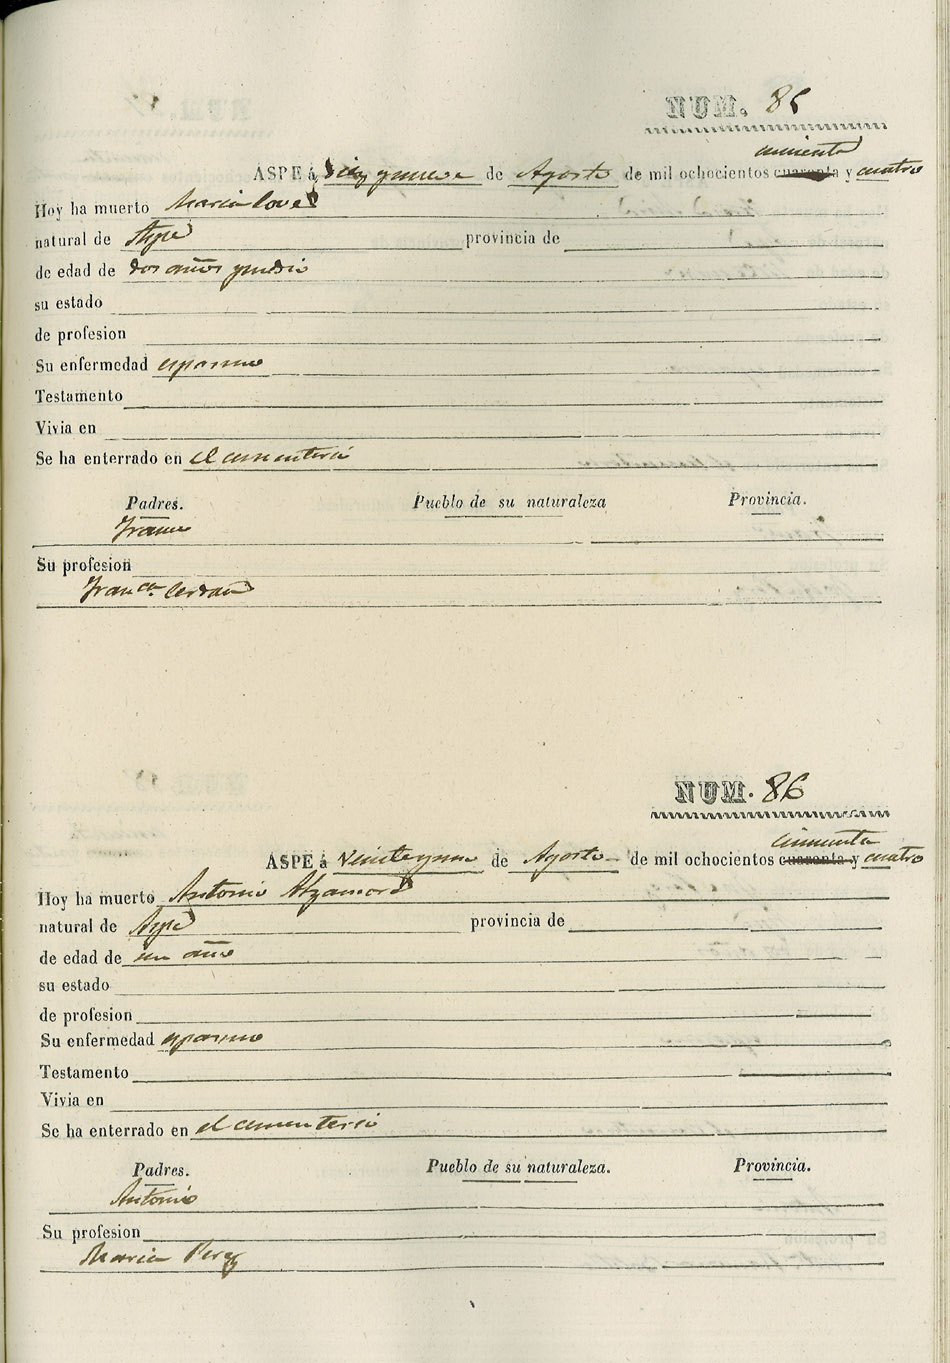 NUM. 85
cincuenta
ASPE á diez y nueve de Agosto de mil ochocientos cuarenta y cuatro
Hoy ha muerto Maria
natural de Aspe provincia de
de edad de dos años y medio
su estado
de profesion
Su enfermedad espasmo
Testamento
Vivia en
Se ha enterrado en el cementerio
Padres. Pueblo de su naturaleza Provincia.
Franco
Su profesion
Franca. Cerdan
NUM. 86
cincuenta
ASPE á veinte y uno de Agosto de mil ochocientos cuarenta y cuatro
Hoy ha muerto Antonio Alzamora
natural de Aspe provincia de
de edad de un año
su estado
de profesion
Su enfermedad espasmo
Testamento
Vivia en
Se ha enterrado en el cementerio
Padres. Pueblo de su naturaleza. Provincia.
Antonio
Su profesion
Maria Perez